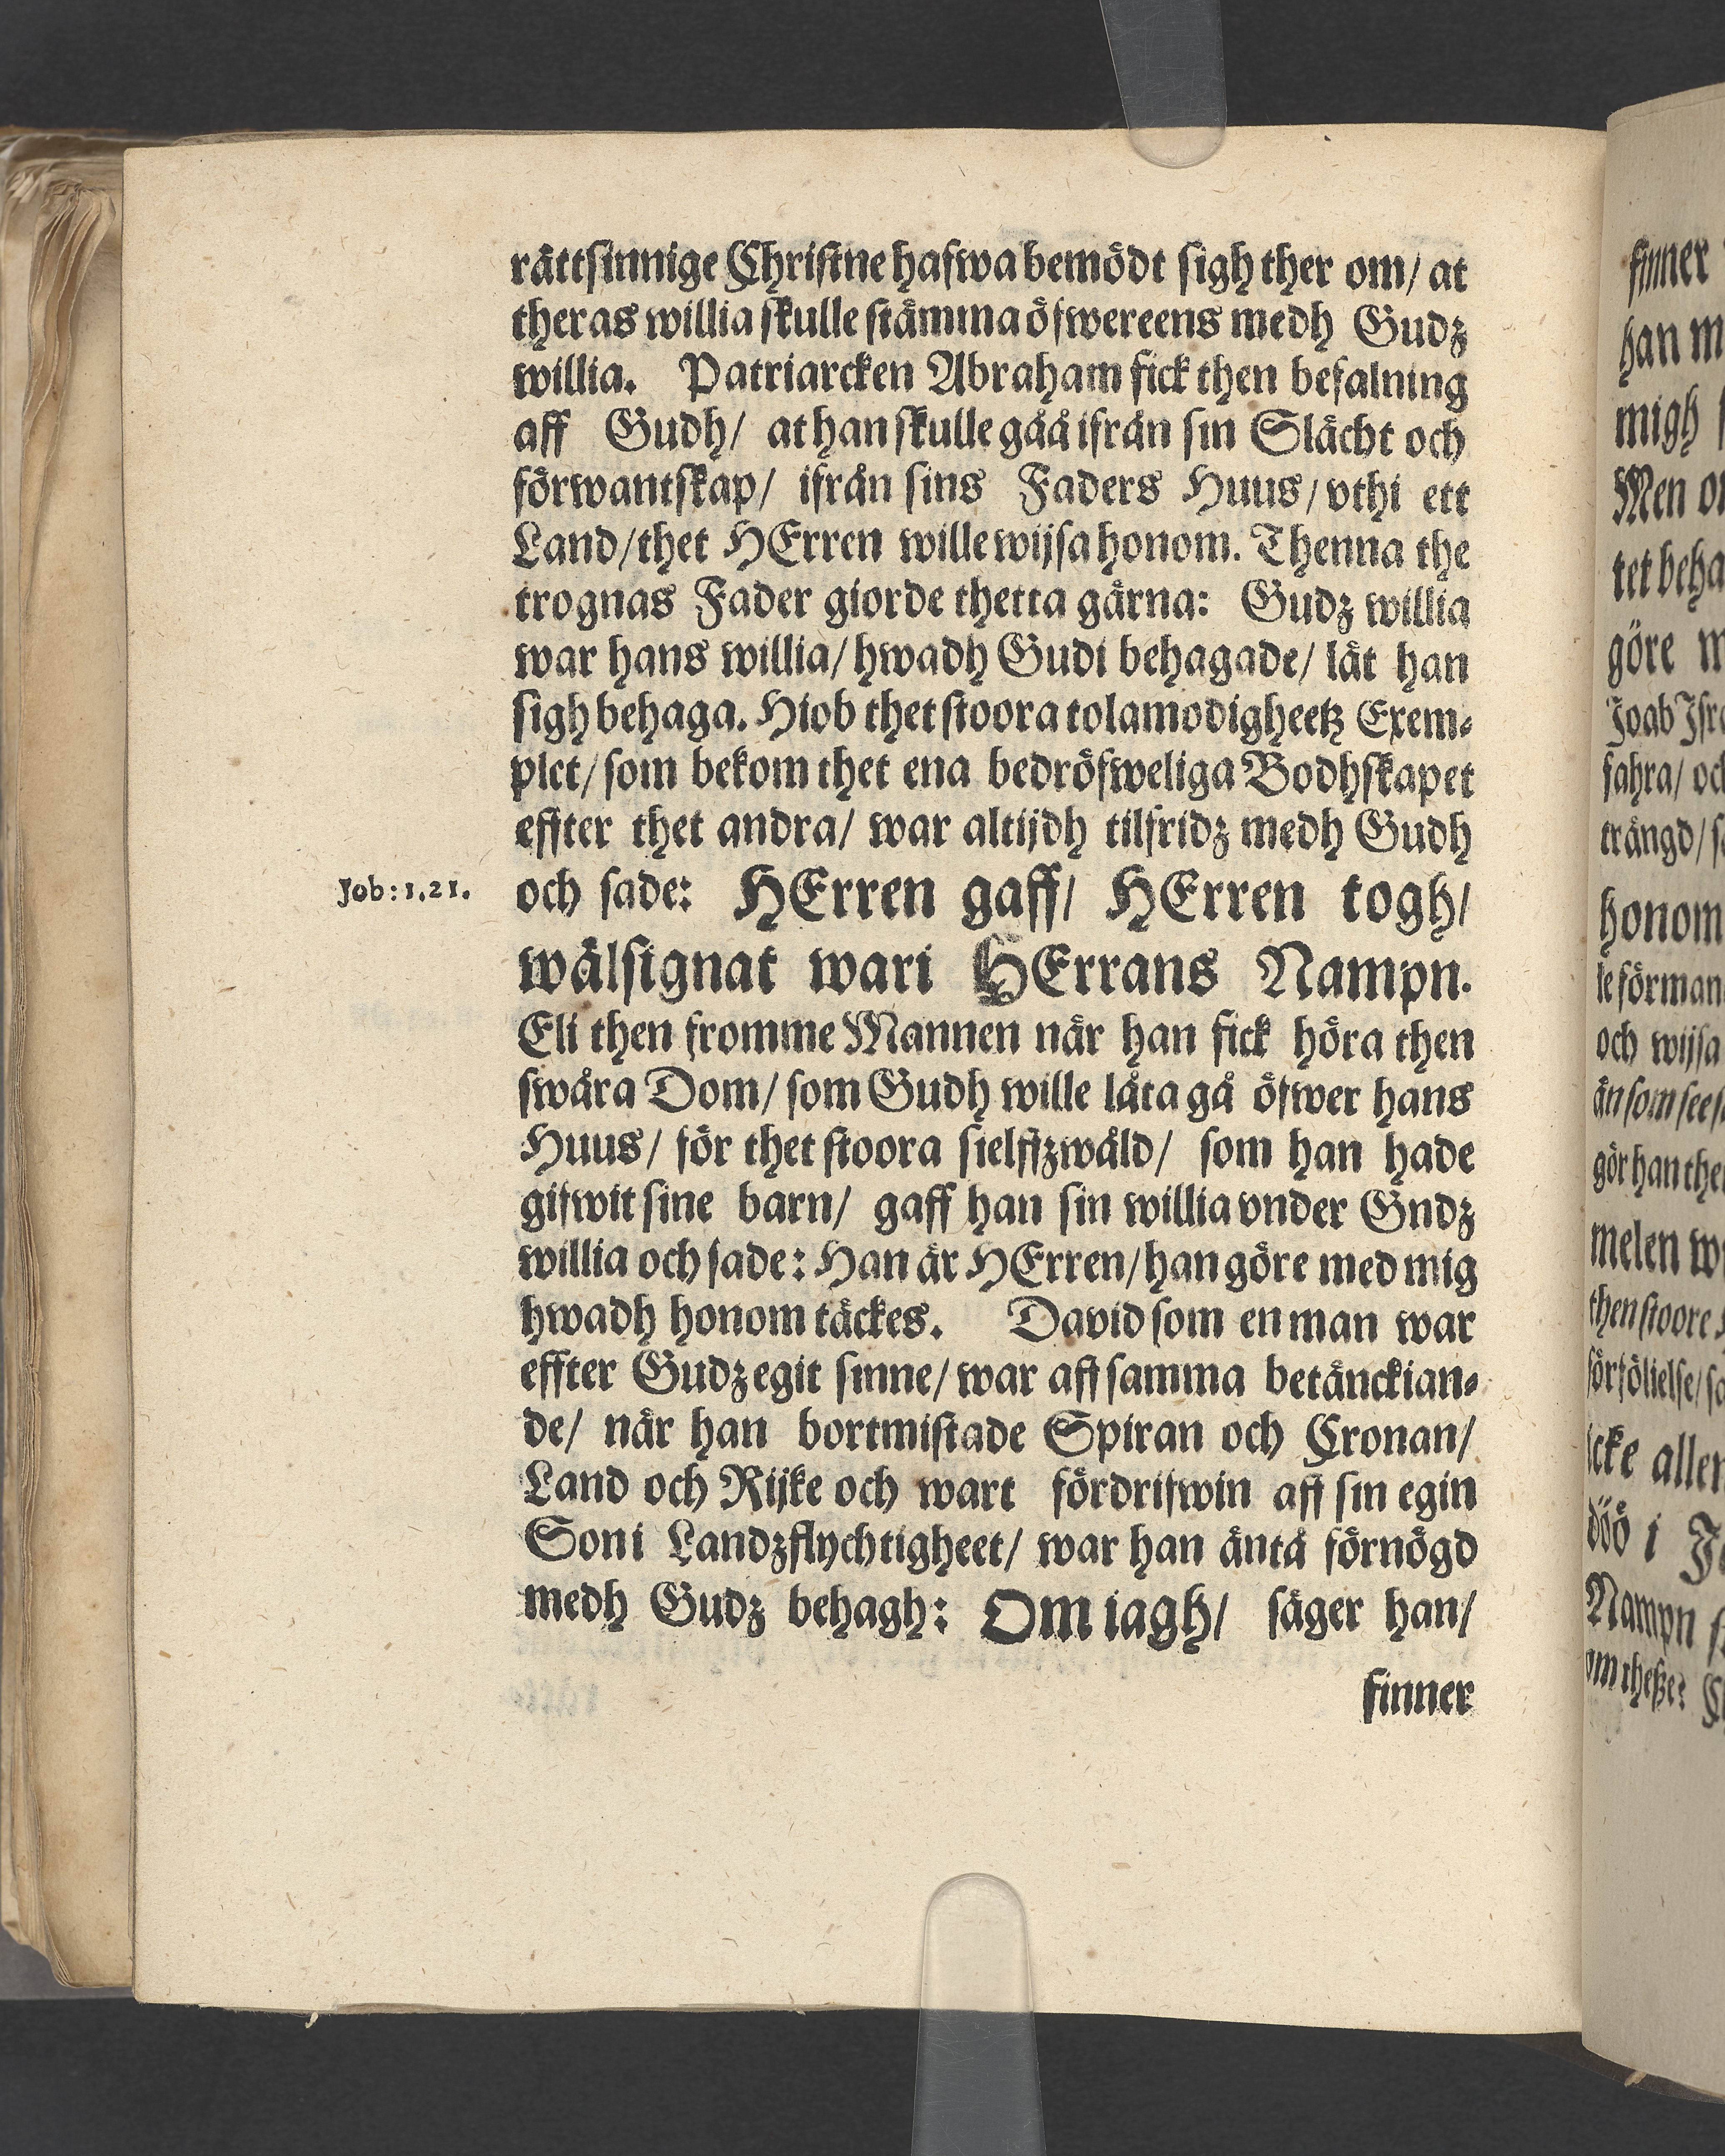 rättsinnige Christne hafwa bemödt sigh ther om/ at
theras willia skulle stämma öfwereens medh Gudz
willia. Patriarcken Abraham fick then befalning
aff Gudh/ at han skulle gåå ifrån sin Slächt och
förwantskap/ ifrån sins Faders Huus/ vthi ett
Land/ thet HErren wille wijsa honom. Thenna the
trognas Fader giorde thetta gärna: Gudz willia
war hans willia/ hwadh Gudi behagade/ lät han
sigh behaga. Hiob thet stoora tolamodigheetz Exem-
plet/ som bekom thet ena bedröfweliga Bodhskapet
effter thet andra/ war altijdh tilfridz medh Gudh
Job: 1.21.
och sade: HErren gaff/ HErren togh/
wälsignat wari HErrans Nampn.
Eli then fromme Mannen når han fick höra then
swåra Dom/ som Gudh wille låta gå öfwer hans
Huus/ för thet stoora sielffzwåld/ som han hade
gifwit sine barn/ gaff han sin willia vnder Gndz
willia och sade: Han är HErren/ han göre med mig
hwadh honom täckes. David som en man war
effter Gudz egit sinne/ war aff samma betänckian-
de/ när han bortmistade Spiran och Cronan/
Land och Rijke och wart fördrifwin aff sin egin
Son i Landzflychtigheet/ war han äntå förnögd
medh Gudz behagh: Om iagh/ säger han/
finner
finner
han m
migh
Men
tet beha
göre
Joab
fahra/
trängd/
honom
le förman
och wijsa
än som
gör han
melen
then stoore
förföllelse/
icke
döö i
Nampn
om theße: